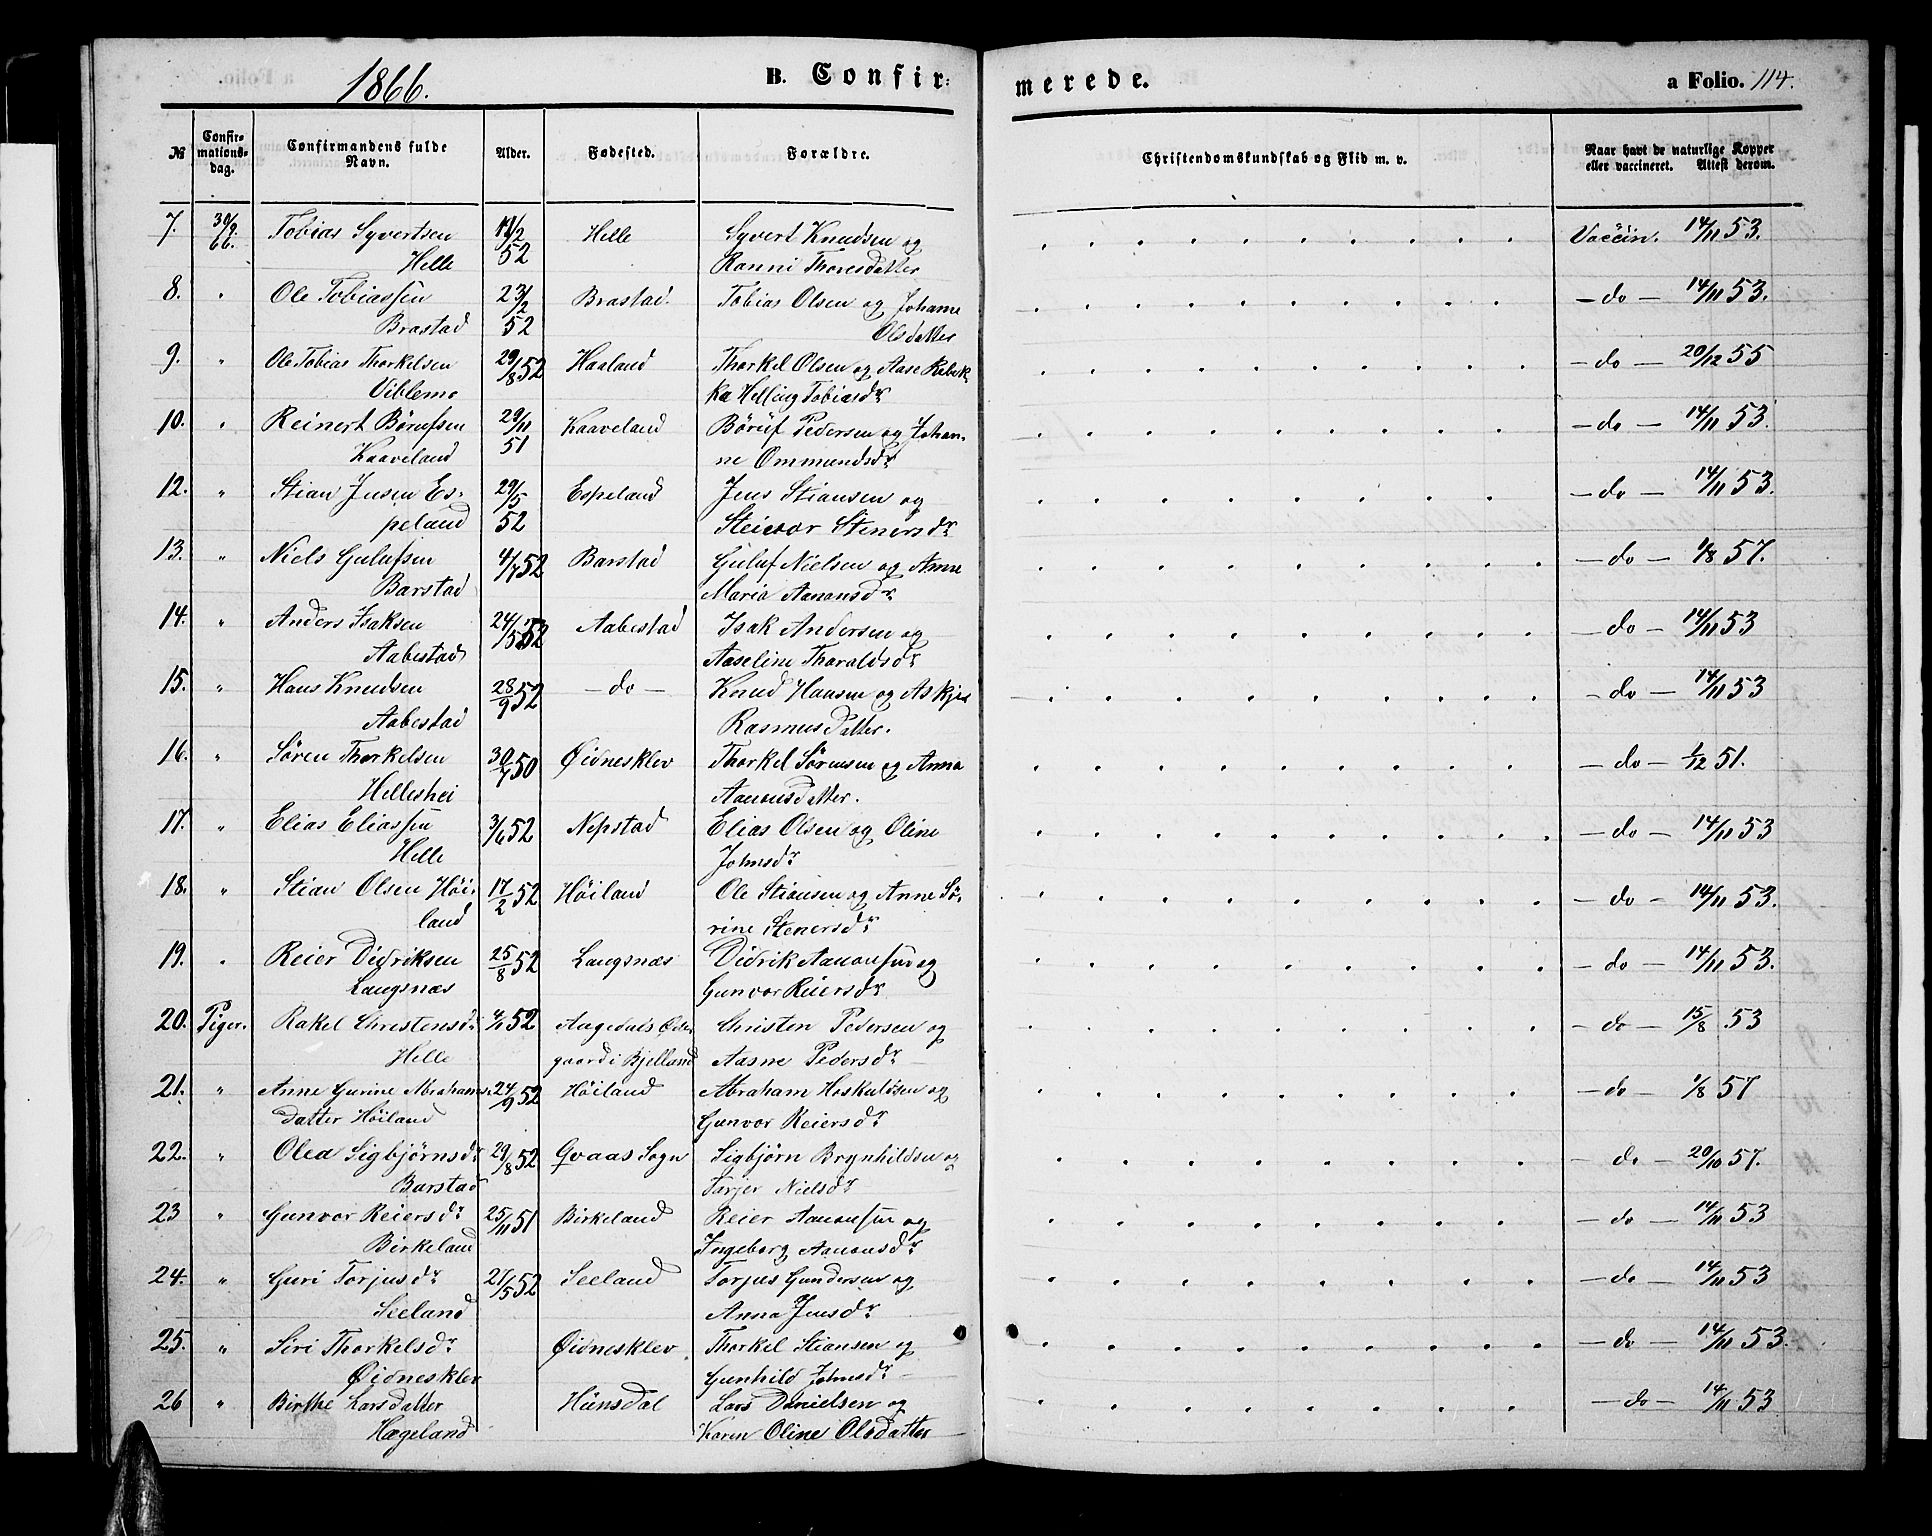 1866.
B. Confir:
merede.
a Folio. 114.
№ Confir-mations-dag. Confirmandens fulde Navn. Alder. Fødested. Forældre. Christendomskundskab og Flid m. v. Naar havt de naturlige Kopper eller vaccineret. Attest derom.
7. 30/9 66. Tobias Syvertsen 52 Helle Syvert Knudsen og Vaccin. 14/11 53.
Helle Ranni Thoresdatter
8. " Ole Tobiassen 23/2 52 Brastad. Tobias Olsen og Johanne - do - 14/11 53.
Brastad Olsdatter
9. " Ole Tobias Thorkelsen 29/8 52 Haaland Thorkel Olsen og Aase Rebek- - do - 20/12 55
Viblemo ka Helling Tobiasdr
10. " Reinert Børufsen 29/11 51 Kaaveland Børuf Pedersen og Johan- - do - 14/11 53.
Kaaveland ne Ommundsdr
12. " Stian Jensen Es- 29/5 52 Espeland Jens Stiansen og - do - 14/11 53.
peland Stenersdr
13. " Niels Gulufsen 4/7 52 Barstad Guluf Nielsen og Anne - do - 1/8 57.
Barstad Maria Aanonsdr
14. " Anders Isaksen 24/5 52 Aabestad Isak Andersen og - do - 14/11 53
Aabestad Aaseline Tharaldsdr
15. " Hans Knudsen 28/9 52 - do - Knud Hansen og Askjer - do - 14/11 53
Aabestad Rasmusdatter.
16. " Søren Thorkelsen 30/7 50 Øidnesklev Thorkel Sørensen og Anna - do - 1/12 51.
Helleshei Aanonsdatter.
17. " Elias Eliassen 3/6 52 Nepstad Elias Olsen og Oline - do - 14/11 53
Helle Johnsdr
18. " Stian Olsen Høi- 17/2 52 Høiland Ole Stiansen og Anne Sø- - do - 14/11 53.
land rine Stenersdr
19. " Reier Didriksen 25/8 52 Langsnæs Didrik Aanonsen og - do - 14/11 53.
Langsnæs Gunvor Reiersdr
20. Piger. Rakel Christensdr 52 Aagedals Øde- Christen Pedersen og - do - 15/8 53
Helle gaard i Bjelland Aasne Pedersdr
21. " Anne Gurine Abrahams- 24/9 52 Høiland Abraham Hoskuldsen og - do - 1/8 57
datter Høiland Gunvor Reiersdr
22. " Olea Sigbjørnsdr 29/8 52 Qvaas Sogn Sigbjørn Brynhildsen og - do - 20/10 57.
Barstad Tarjer Nielsdr
23 " Gunvor Reiersdr 25/11 51 Birkeland Reier Aanonsen og - do - 14/11 53
Birkeland Ingeborg Aanonsdr
24. " Guri Torjusdr 27/5 52 Seeland Torjus Gundersen og - do - 14/11 53
Seeland Anna Jensdr
25. " Siri Thorkelsdr Øidnesklev Thorkel Stiansen og - do - 14/11 53.
Øidnesklev Gunhild Johnsdr
26 " Birthe Larsdatter Hunsdal Lars Danielsen og - do - 14/11 53
Hægeland Karen Oline Olsdatter